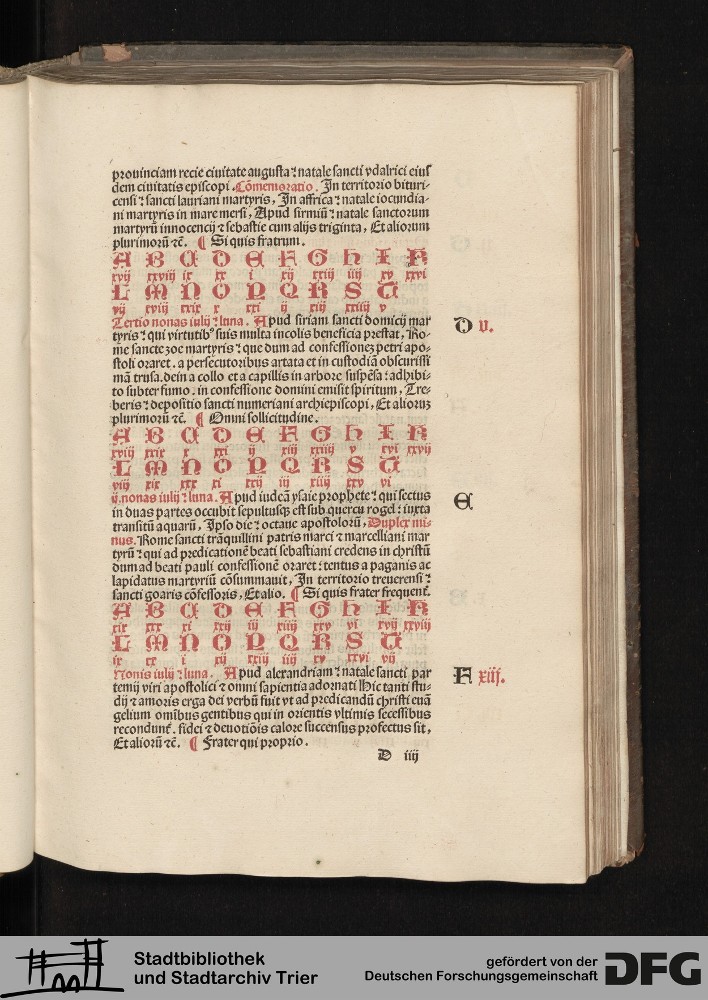 prouinciam recie ciuitate augusta ⁊ natale sancti vdalrici eius
dem ciuitatis episcopi. Cōmemoratio. In territorio bituri-
censi ⁊ sancti lauriani martyris, In affrica ⁊ natale iocundia-
ni martyris in mare mersi, Apud sirmiū ⁊ natale sanctorum
martyrū innocencij ⁊ sebastie cum alijs triginta, Et aliorum
plurimorū ⁊c. ¶ Si quis fratrum.
A B C D E F G H I K
xvij xxviij ix xx i xij xxiij iiij xv xxvi
L M N O P Q R S T
vij xviij xxix x xxi ij xiij xxiiij v
Tertio nonas iulij ⁊ luna. Apud siriam sancti domicij mar
tyris ⁊ qui virtutibꝰ suis multa incolis beneficia prestat, Ro-
me sancte zoe martyris ⁊ que dum ad confessionez petri apo-
stoli oraret. a persecutoribus artata et in custodiā obscurissi
mā trusa. dein a collo et a capillis in arbore suspēsa ⁊ adhibi-
to subter fumo. in confessione domini emisit spiritum, Tre-
beris ⁊ depositio sancti numeriani archiepiscopi, Et alioruz
plurimorū ⁊c. ¶ Omni sollicitudine.
D v.
A B C D E F G H I K
xviij xxix x xxi ij xiij xxiiij v xvi xxvij
L M N O P Q R S T
viij xix xxx xi xxij iij xiiij xxv vi
ij. nonas iulij ⁊ luna. Apud iudeā ysaie prophete ⁊ qui sectus
in duas partes occubit sepultusqꝫ est sub quercu rogel ⁊ iuxta
transitū aquarū, Ipso die ⁊ octaue apostolorū, Duplex mi-
nus. Rome sancti trāquillini patris marci ⁊ marcelliani mar
tyrū ⁊ qui ad predicationē beati sebastiani credens in christū
dum ad beati pauli confessionē oraret ⁊ tentus a paganis ac
lapidatus martyriū cōsummauit, In territorio treuerensi ⁊
sancti goaris cōfessoris, Et alio. ¶ Si quis frater frequent̄.
E
A B C D E F G H I K
xix xxx xi xxij iij xiiij xxv vi xvij xxviij
L M N O P Q R S T
ix xx i xij xxiij iiij xv xxvi vij
Nonis iulij ⁊ luna. Apud alexandriam ⁊ natale sancti par
temij viri apostolici ⁊ omni sapientia adornati Hic tanti stu-
dij ⁊ amoris erga dei verbū fuit vt ad predicandū christi euā
gelium omībus gentibus qui in orientis vltimis secessibus
recondunt̄. fidei ⁊ deuotiōis calore succensus profectus sit,
Et aliorū ⁊c. ¶ Frater qui proprio.
F xiij.
D iiij
Stadtbibliothek
und Stadtarchiv Trier
gefördert von der
Deutschen Forschungsgemeinschaft
DFG